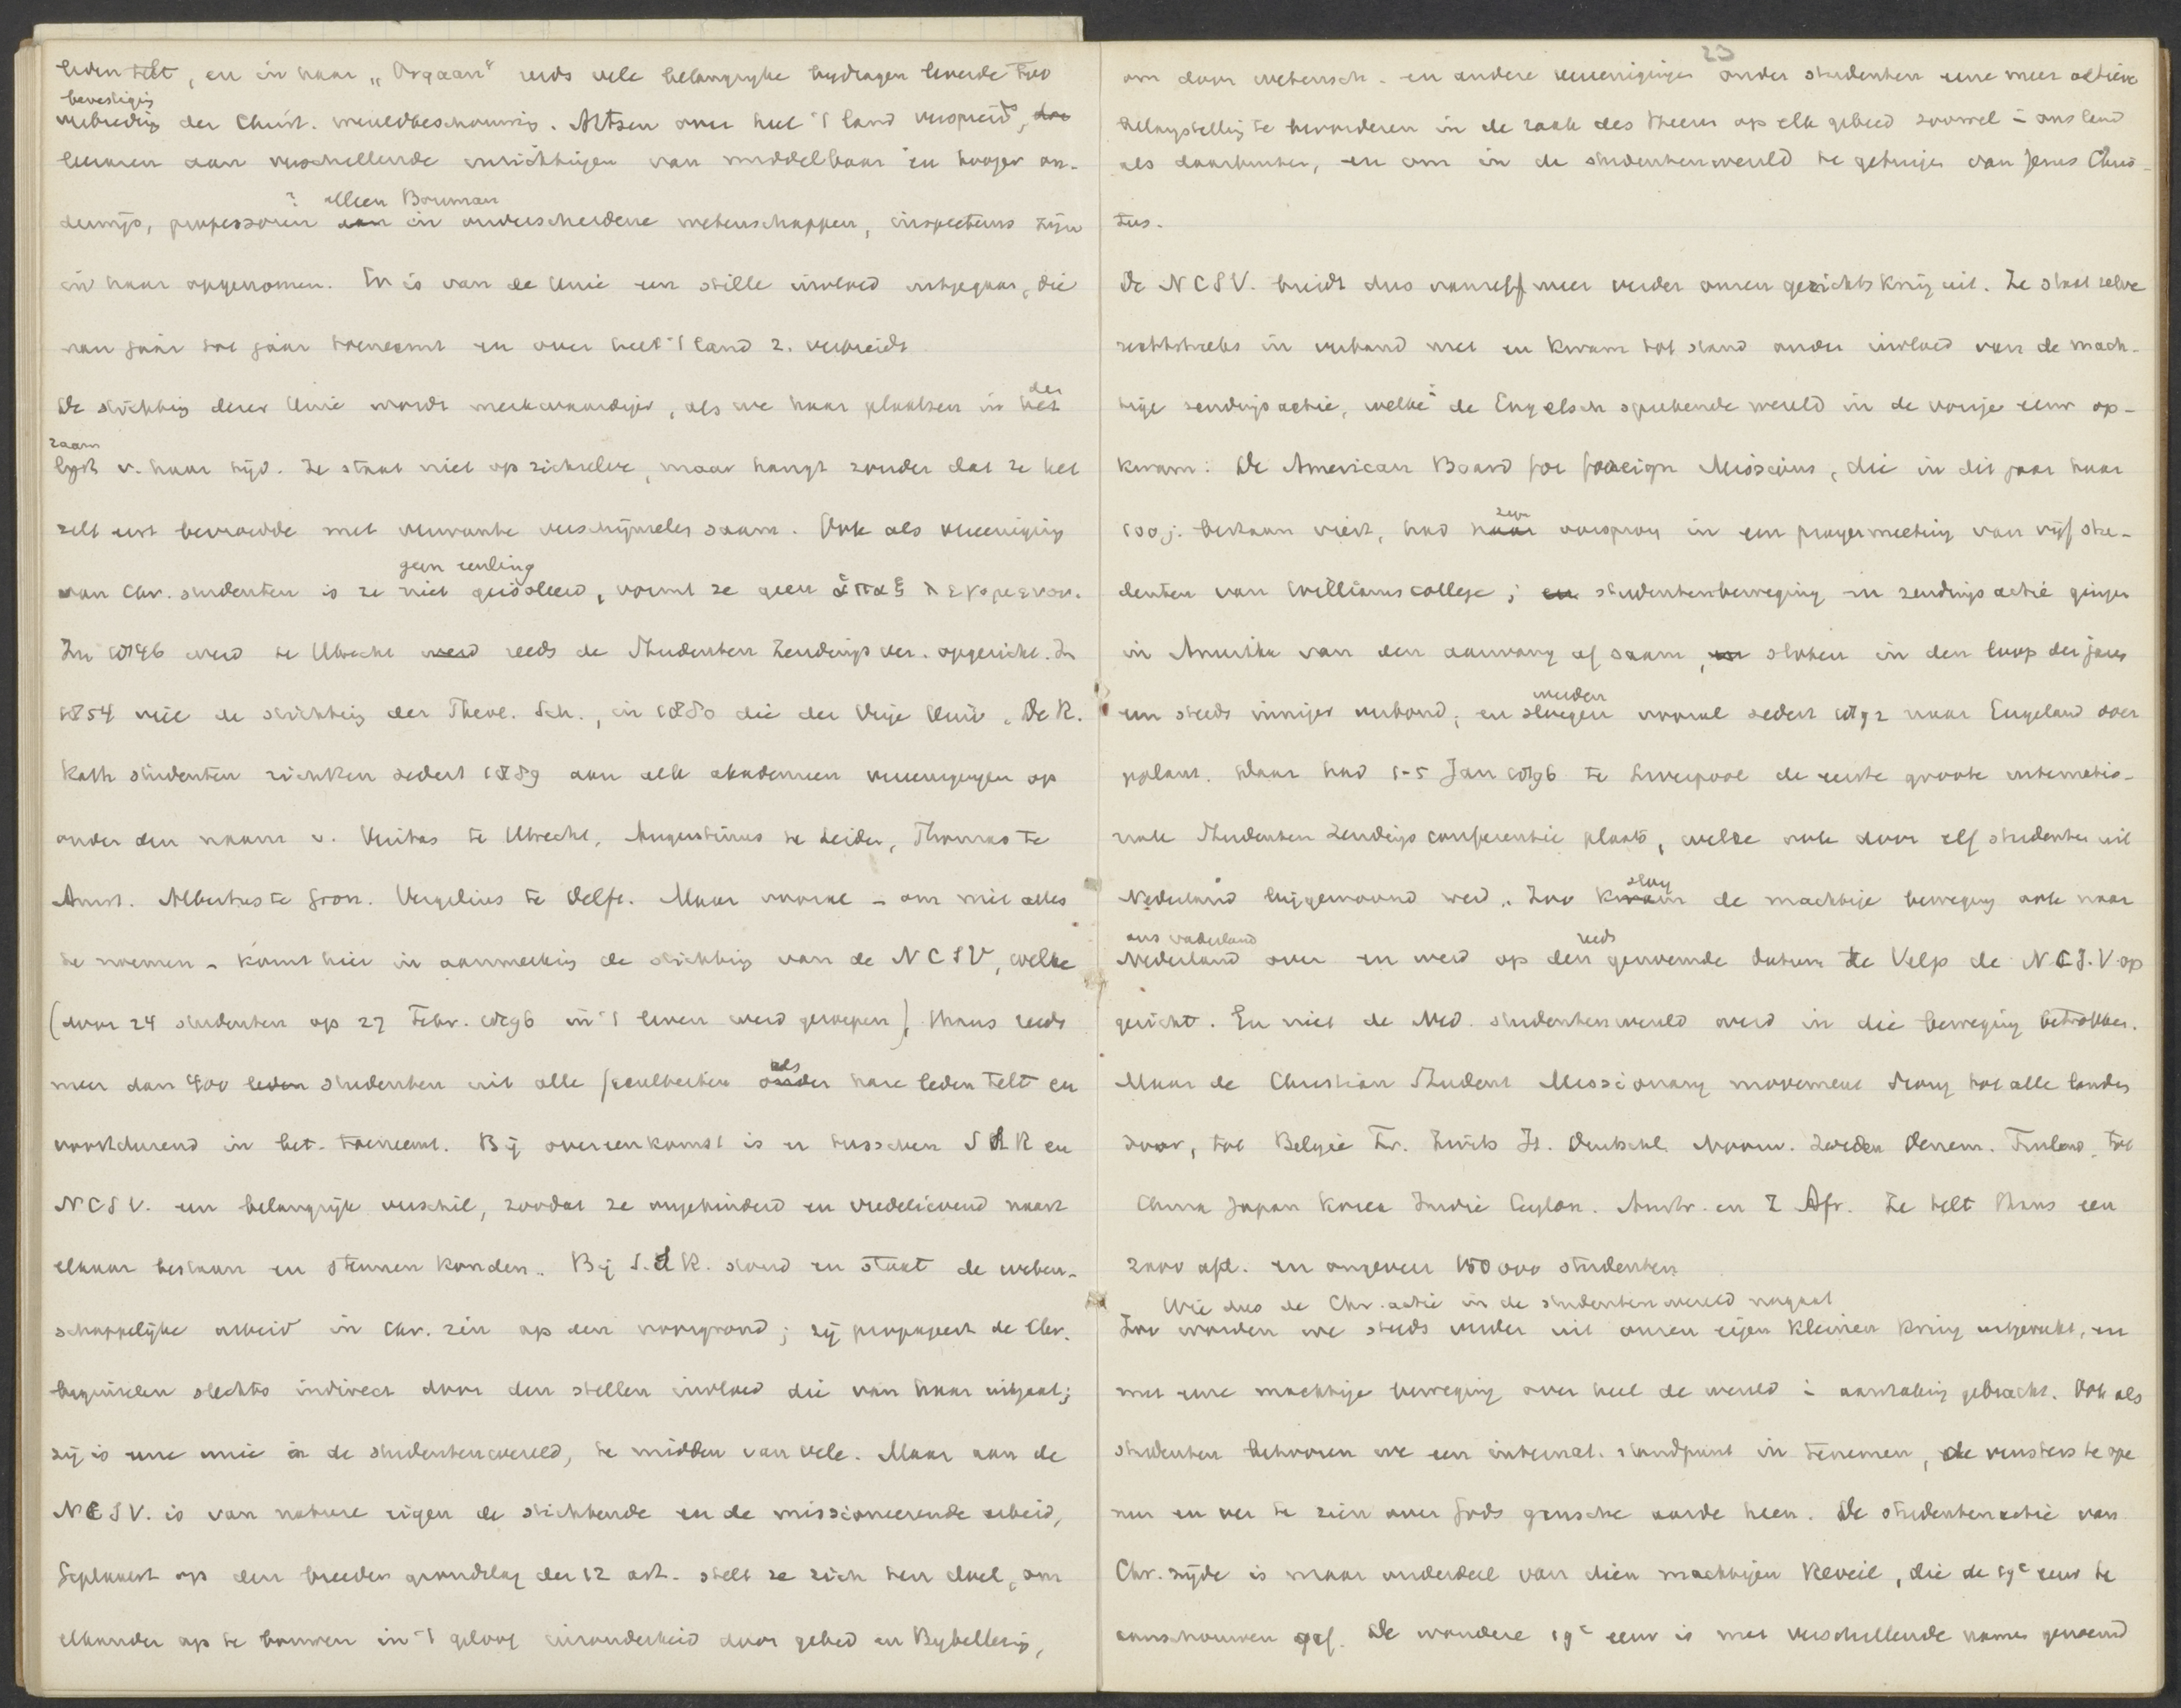 leden telt, en in haar „Orgaan" reeds vele belangrijke bydragen leverde tot
bevestiging
verbreding der Christ. wereldbeschouwing. Artsen over heel 't land verspreid, doc
leeraren aan verschillende inrichtingen van middelbaar en hooger on-
? alleen Bouman
derwijs, professoren aan in onderscheidene wetenschappen, inspecteurs zijn
in haar opgenomen. Er is van de Unie een stille invloed uitgegaan, die
van jaar tot jaar toeneemt en over heel 't land z. verbreidt
der
De stichting dezer Unie wordt merkwaardiger, als we haar plaatsen in het
raam
lijst v. haar tijd. Ze staat niet op zichzelve, maar hangt zonder dat ze het
zelf eerst bevroedde met verwante verschijnselen saam. Ook als vereeniging
geen eenling
van Chr. studenten is ze niet geisoleerd, vormt ze geen ἅπαξ λεγομενον.
In 1846 werd te Utrecht werd reeds de Studenten Zendings ver. opgericht. In
1854 viel de stichting der Theol. Sch., in 1880 die der Vrije Univ. De R.
Kath studenten stichtten sedert 1889 aan alle akademien vereenigingen op
onder den naam v. Veritas te Utrecht, Augustinus te Leiden, Thomas te
Amst. Albertus te Gron. Vergilius te Delft. Maar vooral – om niet alles
te noemen – komt hier in aanmerking de stichting van de NCSV, welke
(door 24 studenten op 27 Febr. 1896 in 't leven werd geroepen), thans reeds
als
meer dan 400 leden studenten uit alle faculteiten onder hare leden telt en
voortdurend in bet. toeneemt. Bij overeenkomst is er tusschen SSR en
NCSV. een belangrijk verschil, zoodat ze ongehinderd en vredelievend naast
elkaar bestaan en steunen konden. Bij S.S.R. stond en staat de weten-
schappelijke arbeid in Chr. zin op den voorgrond; zij propageert de Chr.
beginselen slechts indirect door den stillen invloed die van haar uitgaat;
zij is eene unie in de studentenwereld, te midden van vele. Maar aan de
NCSV. is van nature eigen de stichtende en de missioneerende arbeid,
Geplaatst op den breeden grondslag der 12 art. stelt ze zich ten doel, om
elkander op te bouwen in 't geloof inzonderheid door gebed en Bybellezing,
23
om door wetensch. en andere vereenigingen onder studenten eene meer actieve
belangstelling te bevorderen in de zaak des Heeren op elk gebied zoowel in ons land
als daarbuiten, en om in de studentenwereld te getuigen van Jezus Chris-
tus.
De NCSV. breidt dus vanzelf weer verder onzen gezichtskring uit. Ze staat zelve
rechtstreeks in verband met en kwam tot stand onder invloed van de mach-
tige zendingsactie, welke in de Engelsch sprekende wereld in de vorige eeuw op-
kwam: De American Board for foreign Missions, die in dit jaar haar
zijn
100 j. bestaan viert, had haar oorsprong in een prayermeeting van vijf stu-
denten van Williams college; en studentenbeweging en zendingsactie gingen
in Amerika van den aanvang af saam, en sloten in den loop der jaren
werden
een steeds inniger verbond, en sloegen vooral sedert 1892 naar Engeland over
geplant. Daar had 1-5 Jan 1896 te Liverpool de eerste groote internatio-
nale Studenten Zendings conferentie plaats, welke ook door elf studenten uit
sloeg
Nederland bijgewoond werd. Zoo kwam de machtige beweging ook naar
ons vaderland reeds
Nederland over en werd op den genoemde datum te Velp de N.C.S.V. op
gericht. En niet de Ned. studentenwereld werd in die beweging betrokken.
Maar de Christian Student Missionary movement drong tot alle landen
door, tot Belgie Fr. Zwits It. Duitschl. Noorw. Zweden Denem. Finland, tot
China Japan Korea Indie Ceylon. Austr. en Z Afr. Ze telt thans een
2000 afd. en ongeveer 150 000 studenten
Wie dus de Chr. actie in de studentenwereld nagaat
Zoo worden we steeds verder uit onzen eigen kleinen kring uitgerukt, en
met eene machtige beweging over heel de wereld in aanraking gebracht. Ook als
studenten behooren we een internat. standpunt in te nemen, de vensters te ope
nen en ver te zien over Gods gansche aarde heen. De studentenactie van
Chr. zijde is maar onderdeel van dien machtigen Reveil, die de 19e eeuw te
aanschouwen gaf. De wondere 19e eeuw is met verschillende namen genoemd